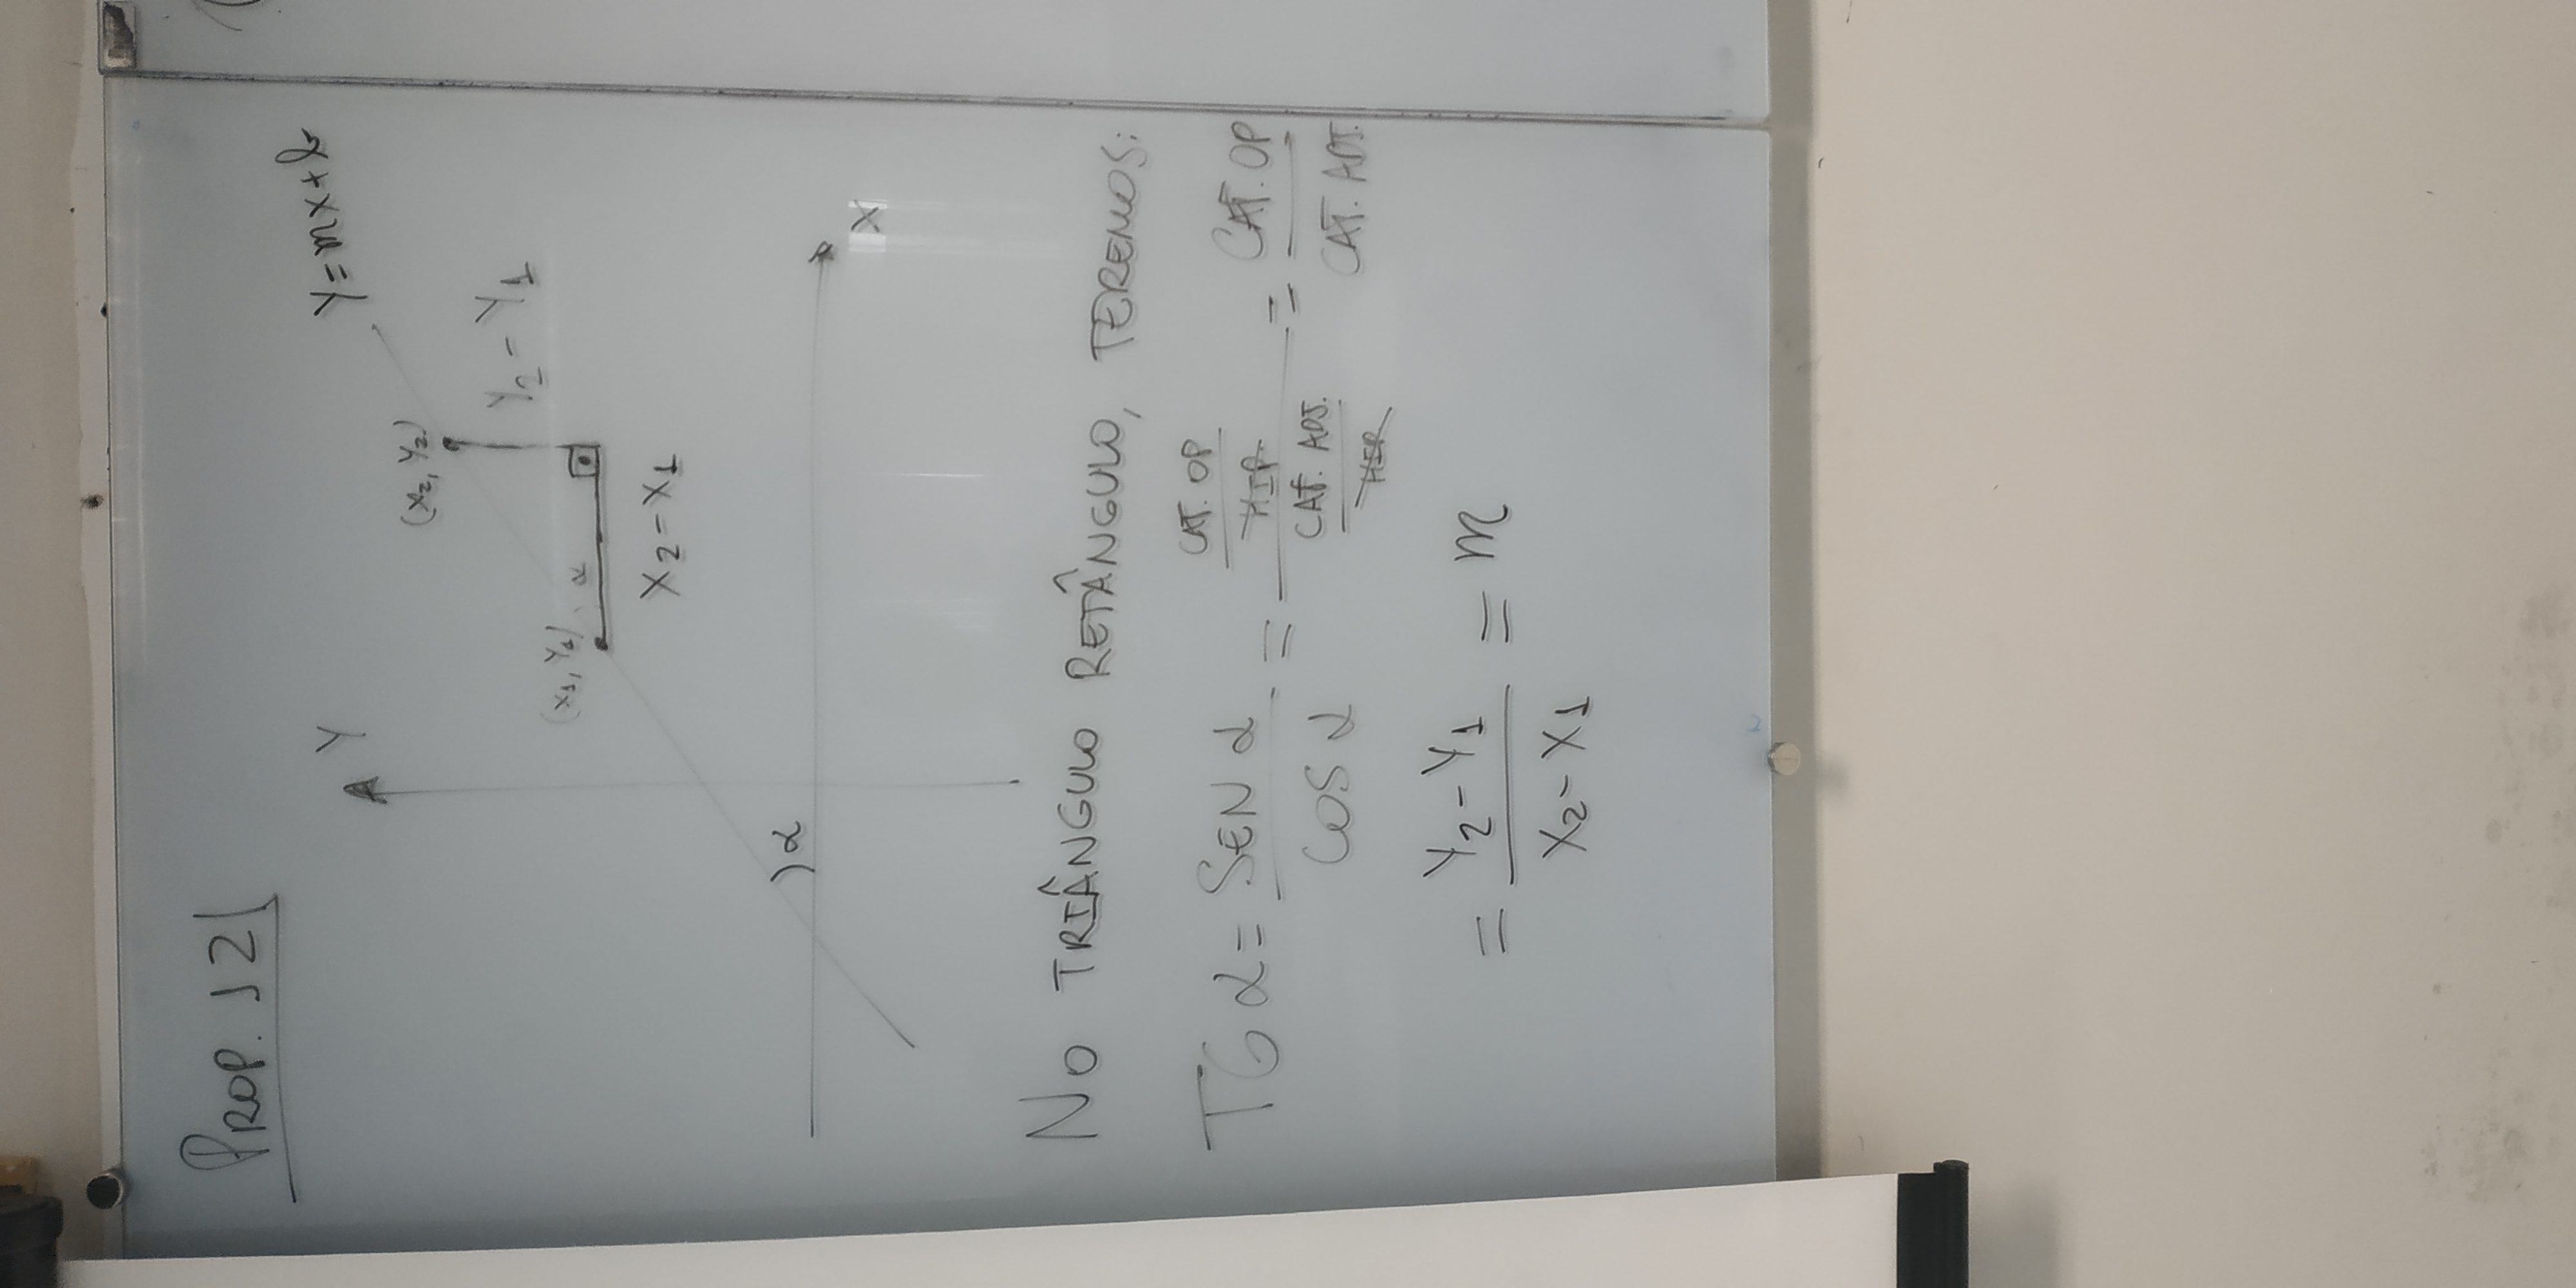 PROP. 121
Y
Y=mX+b
(X₂, Y₂)
Y₂-Y₁
(X₁, Y₁) α
X₂-X₁
α
X
NO TRIÂNGULO RETÂNGULO, TEREMOS:
TG α = SEN α / COS α = (CAT. OP / HIP) / (CAT. ADJ. / HIP) = CAT. OP / CAT. ADJ.
= (Y₂-Y₁) / (X₂-X₁) = m